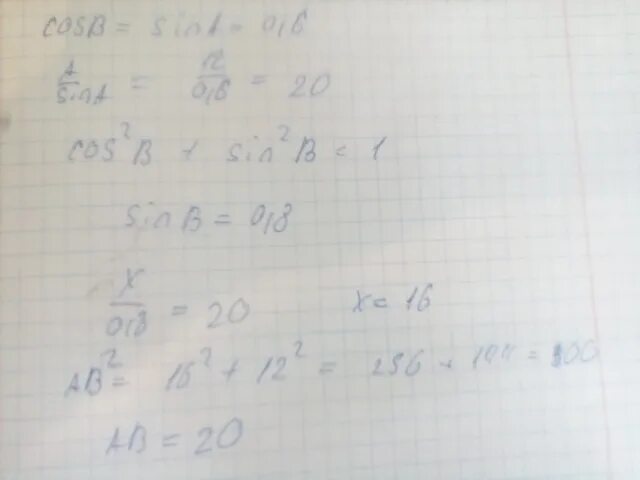 cosB = sinA = 0,6
A/sinA = 12/0,6 = 20
cos²B + sin²B = 1
sinB = 0,8
x/0,8 = 20 x = 16
AB² = 16² + 12² = 256 + 144 = 400
AB = 20